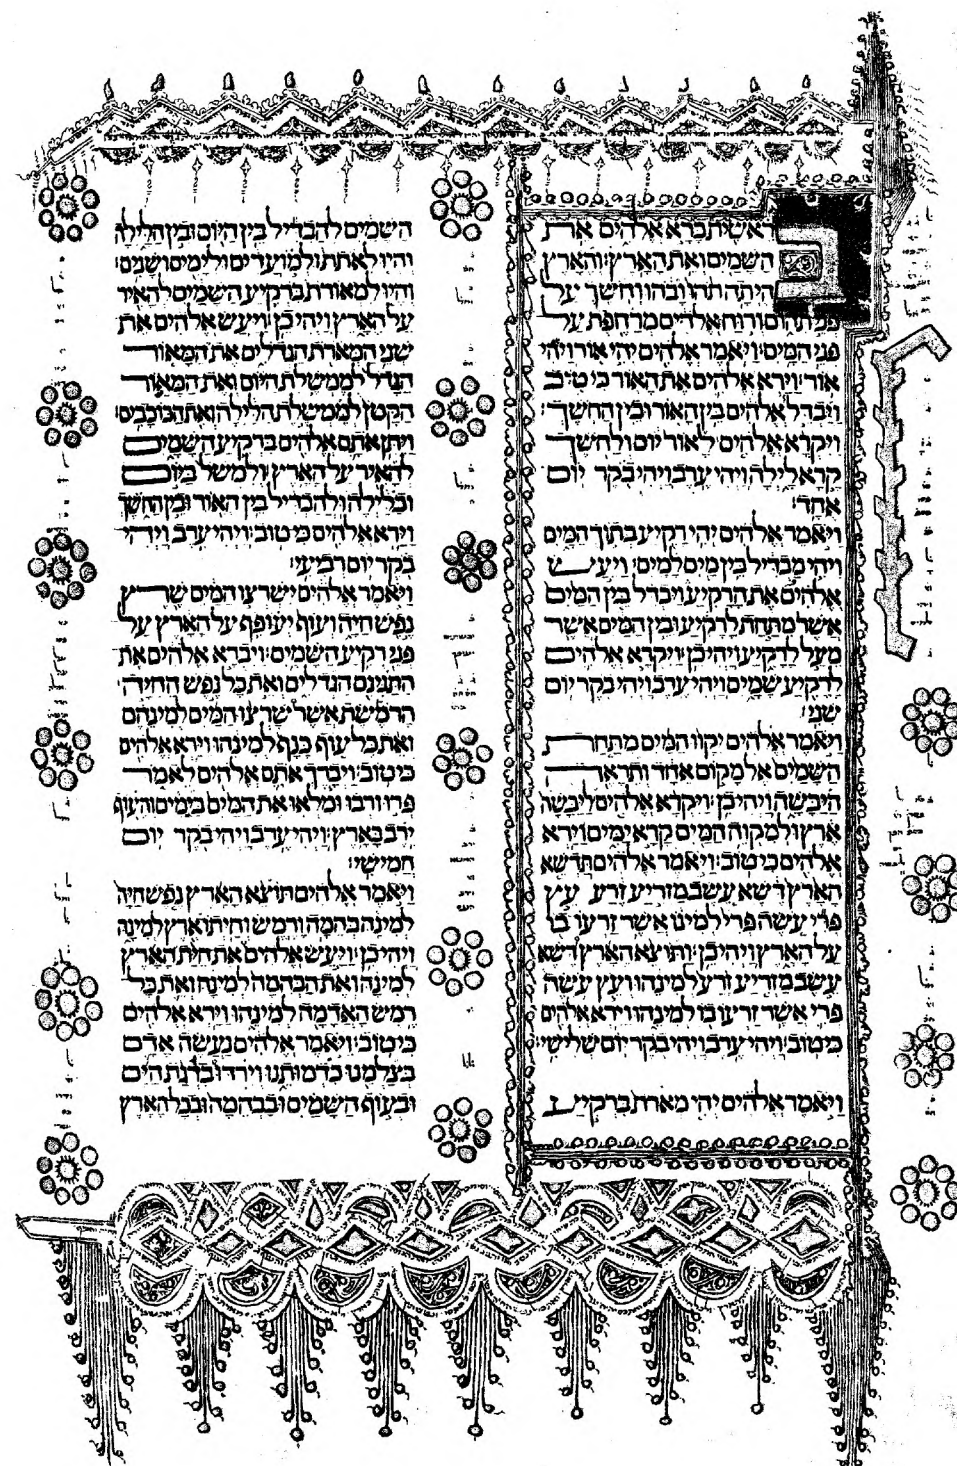 בראשית ברא אלהים את
השמים ואת הארץ׃ והארץ
היתה תהו ובהו וחשך על
פני תהום ורוח אלהים מרחפת על
פני המים׃ ויאמר אלהים יהי אור ויהי
אור׃ וירא אלהים את האור כי טוב
ויבדל אלהים בין האור ובין החשך׃
ויקרא אלהים לאור יום ולחשך
קרא לילה ויהי ערב ויהי בקר יום
אחד׃
ויאמר אלהים יהי רקיע בתוך המים
ויהי מבדיל בין מים למים׃ ויעש
אלהים את הרקיע ויבדל בין המים
אשר מתחת לרקיע ובין המים אשר
מעל לרקיע ויהי כן׃ ויקרא אלהים
לרקיע שמים ויהי ערב ויהי בקר יום
שני׃
ויאמר אלהים יקוו המים מתחת
השמים אל מקום אחד ותראה
היבשה ויהי כן׃ ויקרא אלהים ליבשה
ארץ ולמקוה המים קרא ימים וירא
אלהים כי טוב׃ ויאמר אלהים תדשא
הארץ דשא עשב מזריע זרע עץ
פרי עשה פרי למינו אשר זרעו בו
על הארץ ויהי כן׃ ותוצא הארץ דשא
עשב מזריע זרע למינהו ועץ עשה
פרי אשר זרעו בו למינהו וירא אלהים
כי טוב׃ ויהי ערב ויהי בקר יום שלישי׃
ויאמר אלהים יהי מארת ברקיע
השמים להבדיל בין היום ובין הלילה
והיו לאתת ולמועדים ולימים ושנים׃
והיו למאורת ברקיע השמים להאיר
על הארץ ויהי כן׃ ויעש אלהים את
שני המארת הגדלים את המאור
הגדל לממשלת היום ואת המאור
הקטן לממשלת הלילה ואת הכוכבים׃
ויתן אתם אלהים ברקיע השמים
להאיר על הארץ׃ ולמשל ביום
ובלילה ולהבדיל בין האור ובין החשך
וירא אלהים כי טוב׃ ויהי ערב ויהי
בקר יום רביעי׃
ויאמר אלהים ישרצו המים שרץ
נפש חיה ועוף יעופף על הארץ על
פני רקיע השמים׃ ויברא אלהים את
התנינם הגדלים ואת כל נפש החיה
הרמשת אשר שרצו המים למינהם
ואת כל עוף כנף למינהו וירא אלהים
כי טוב׃ ויברך אתם אלהים לאמר
פרו ורבו ומלאו את המים בימים והעוף
ירב בארץ׃ ויהי ערב ויהי בקר יום
חמישי׃
ויאמר אלהים תוצא הארץ נפש חיה
למינה בהמה ורמש וחיתו ארץ למינה
ויהי כן׃ ויעש אלהים את חית הארץ
למינה ואת הבהמה למינה ואת כל
רמש האדמה למינהו וירא אלהים
כי טוב׃ ויאמר אלהים נעשה אדם
בצלמנו כדמותנו וירדו בדגת הים
ובעוף השמים ובבהמה ובכל הארץ